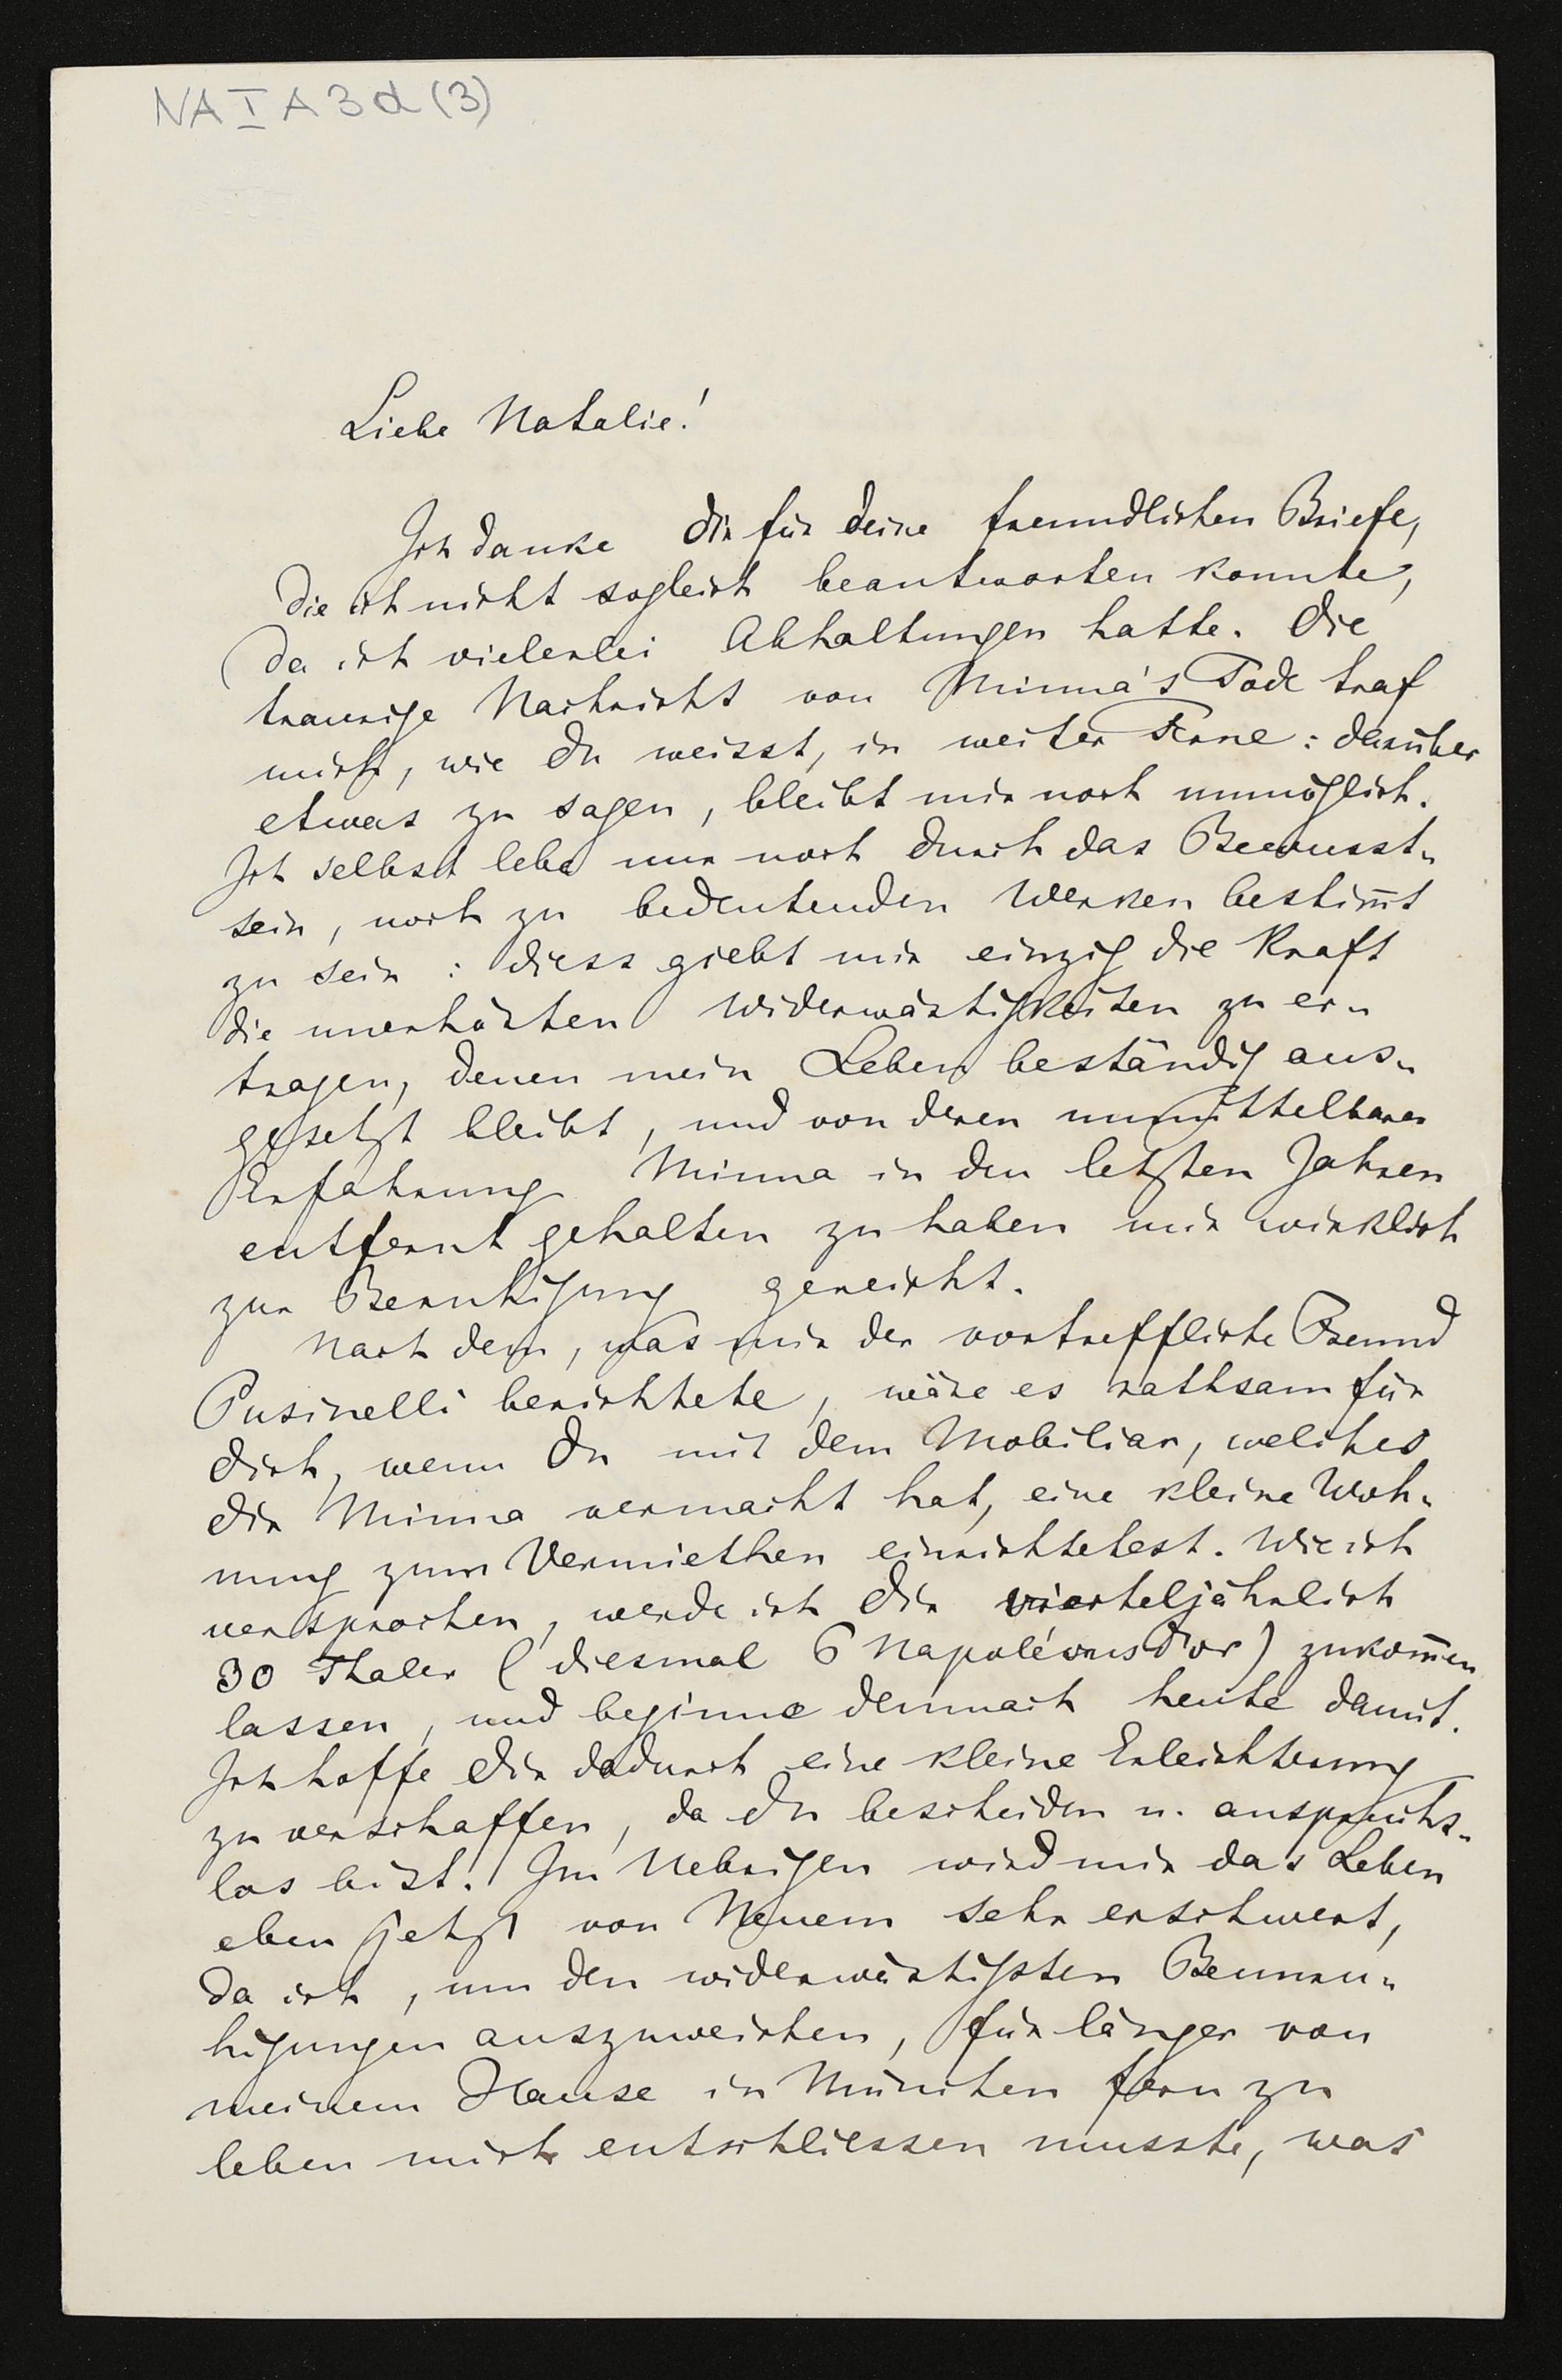 NA I A 3 d (3)
Liebe Natalie!
Ich danke Dir für Deine freundlichen Briefe,
die ich nicht sogleich beantworten konnte,
da ich vielerlei Abhaltungen hatte. Die
traurige Nachricht von Minna's Tode traf
mich, wie Du weisst, in weiter Ferne: darüber
etwas zu sagen, bleibt mir noch unmöglich.
Ich selbst lebe nur noch durch das Bewusst-
sein, noch zu bedeutenden Werken bestim̅t
zu sein: diess giebt mir einzig die Kraft
die unerhörten Widerwärtigkeiten zu er-
tragen, denen mein Leben beständig aus-
gesetzt bleibt, und von deren unmittelbarer
Erfahrung Minna in den letzten Jahren
entfernt gehalten zu haben mir wirklich
zur Beruhigung gereicht.
Nach dem, was mir der vortreffliche Freund
Pusinelli berichtete, wäre es rathsam für
Dich, wenn Du mit dem Mobiliar, welches
Dir Minna vermacht hat, eine kleine Woh-
nung zum Vermiethen einrichtetest. Wie ich
versprochen, werde ich Dir vierteljährlich
30 Thaler (diesmal 6 Napoléonsd'or) zukom̅en
lassen, und beginne demnach heute damit.
Ich hoffe Dir dadurch eine kleine Erleichterung
zu verschaffen, da Du bescheiden u. anspruchs-
los bist. Im Uebrigen wird mir das Leben
eben jetzt von Neuem sehr erschwert,
da ich, um den widerwärtigsten Beunru-
higungen auszuweichen, für länger von
meinem Hause in München fern zu
leben mich entschliessen musste, was